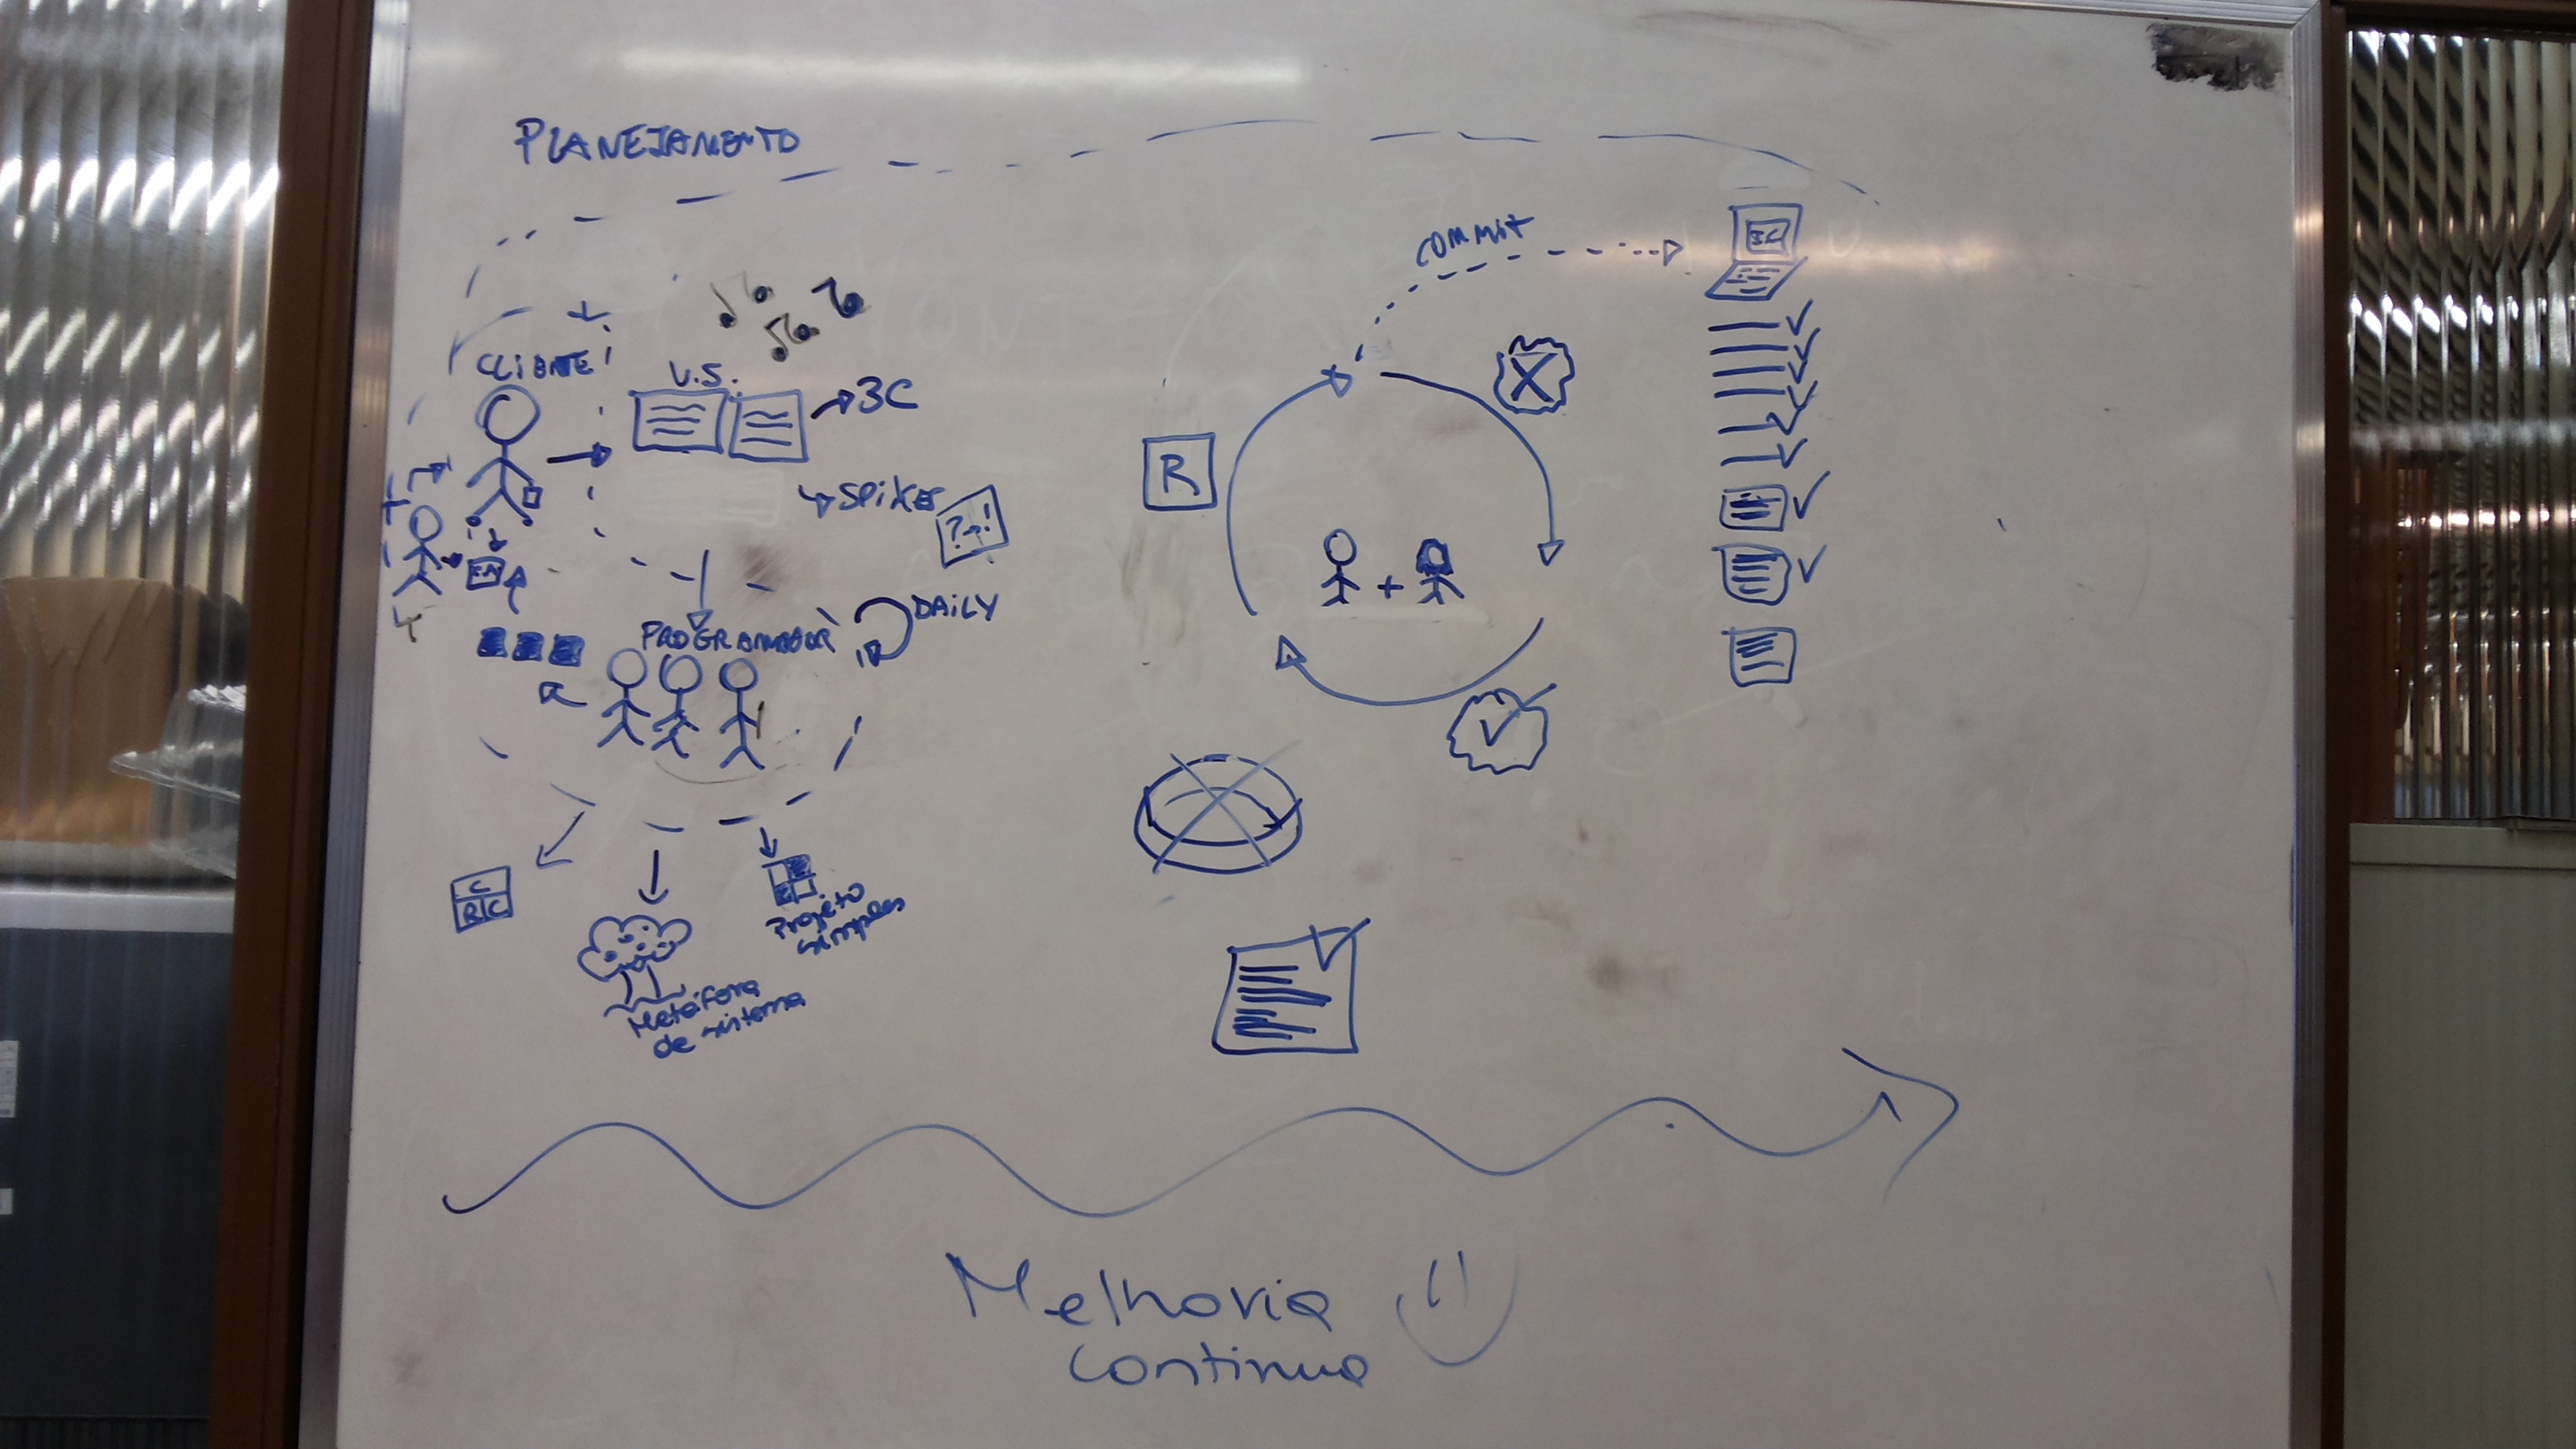 PLANEJAMENTO
COMMIT
IC
CLIENTE
U.S.
→3C
X
R
SPIKES
?→!
+
DAILY
PROGRAMADOR
C
R C
Projeto
simples
Metáfora
de sistema
Melhoria
contínua